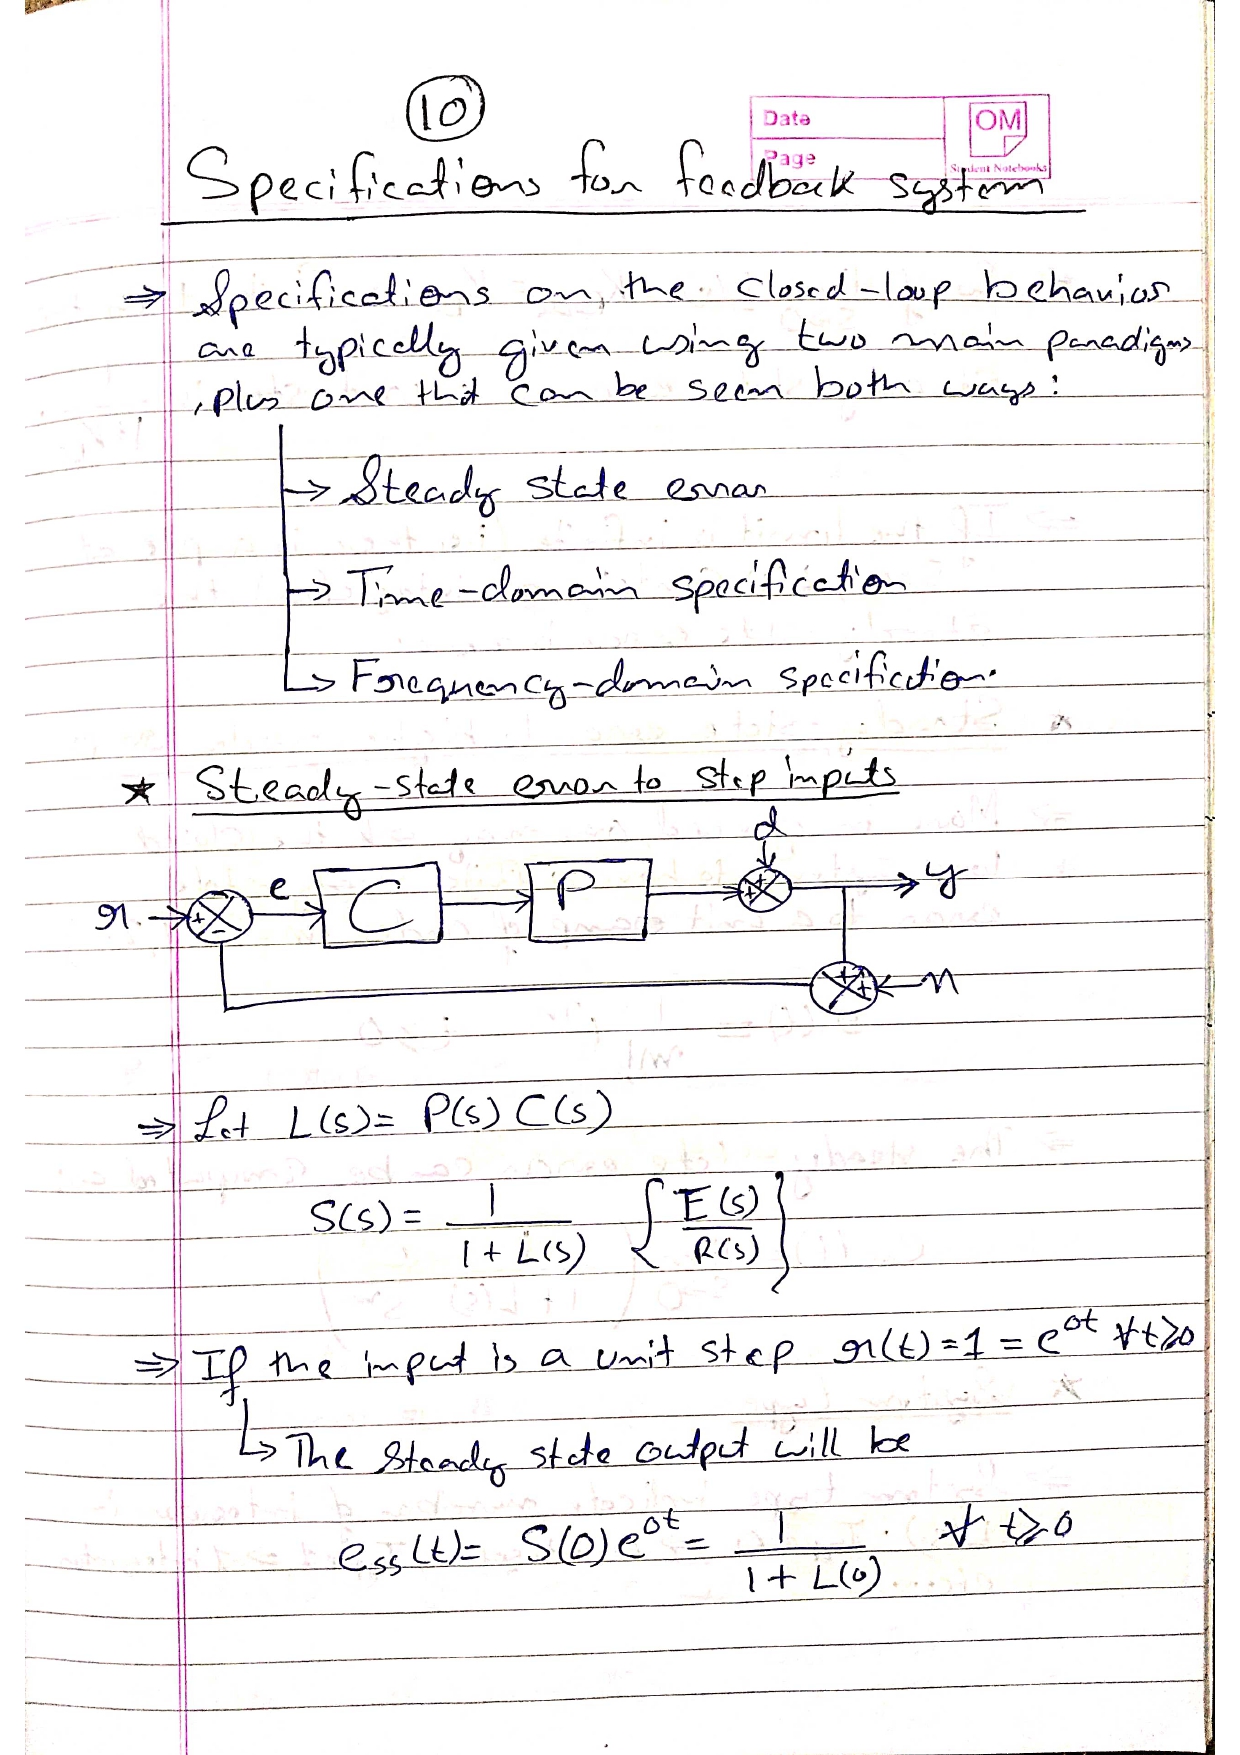 10
Data
Page
OM
Student Notebooks
Specifications for feedback system
⇒ Specifications on, the closed-loop behavior
are typically given using two main paradigms
, plus one that can be seen both ways:
→ Steady state error
→ Time-domain specification
↳ Frequency-domain specification.
★ Steady-state error to step inputs
d
r → + - e C P + + y
+ + n
⇒ Let L(s)= P(s) C(s)
S(s) = 1 / (1 + L(s)) { E(s) / R(s) }
⇒ If the input is a unit step r(t)=1 = e^0t ∀t≥0
↳ The Steady state output will be
e_ss(t)= S(0)e^0t = 1 / (1 + L(0)) ∀ t≥0